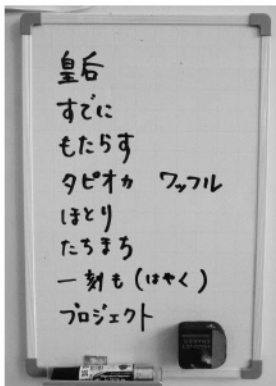 皇后
すでに
もたらす
タピオカ　ワッフル
ほとり
たちまち
一刻も(はやく)
プロジェクト